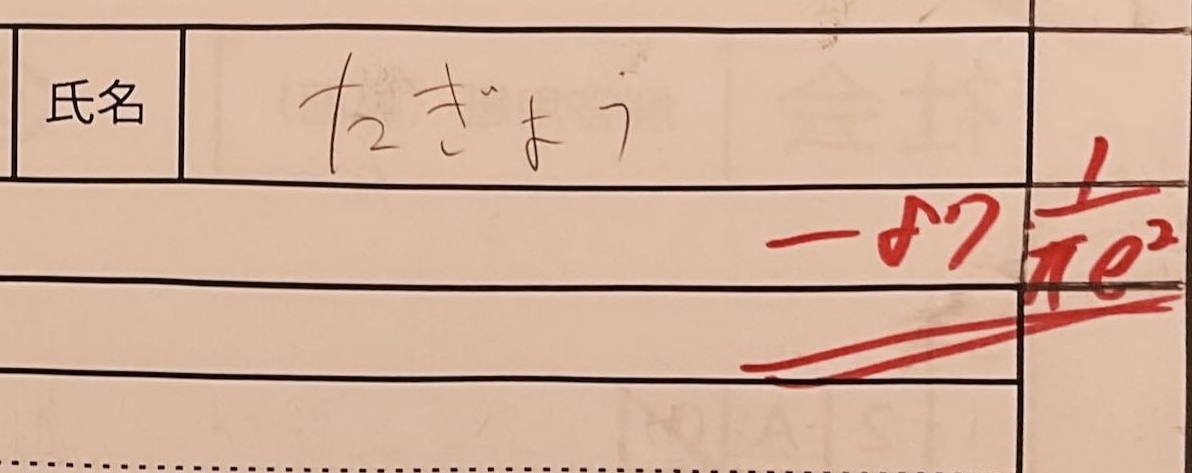 氏名 たぎょう
-87 1/πe²